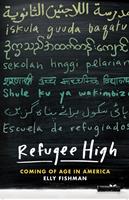 مدرسة اللاجئين الثانوية
iskula guuda baqatu
pelarian
Shule ku ya wakimbizi
Escuela de refugiados
Refugee High
COMING OF AGE IN AMERICA
ELLY FISHMAN